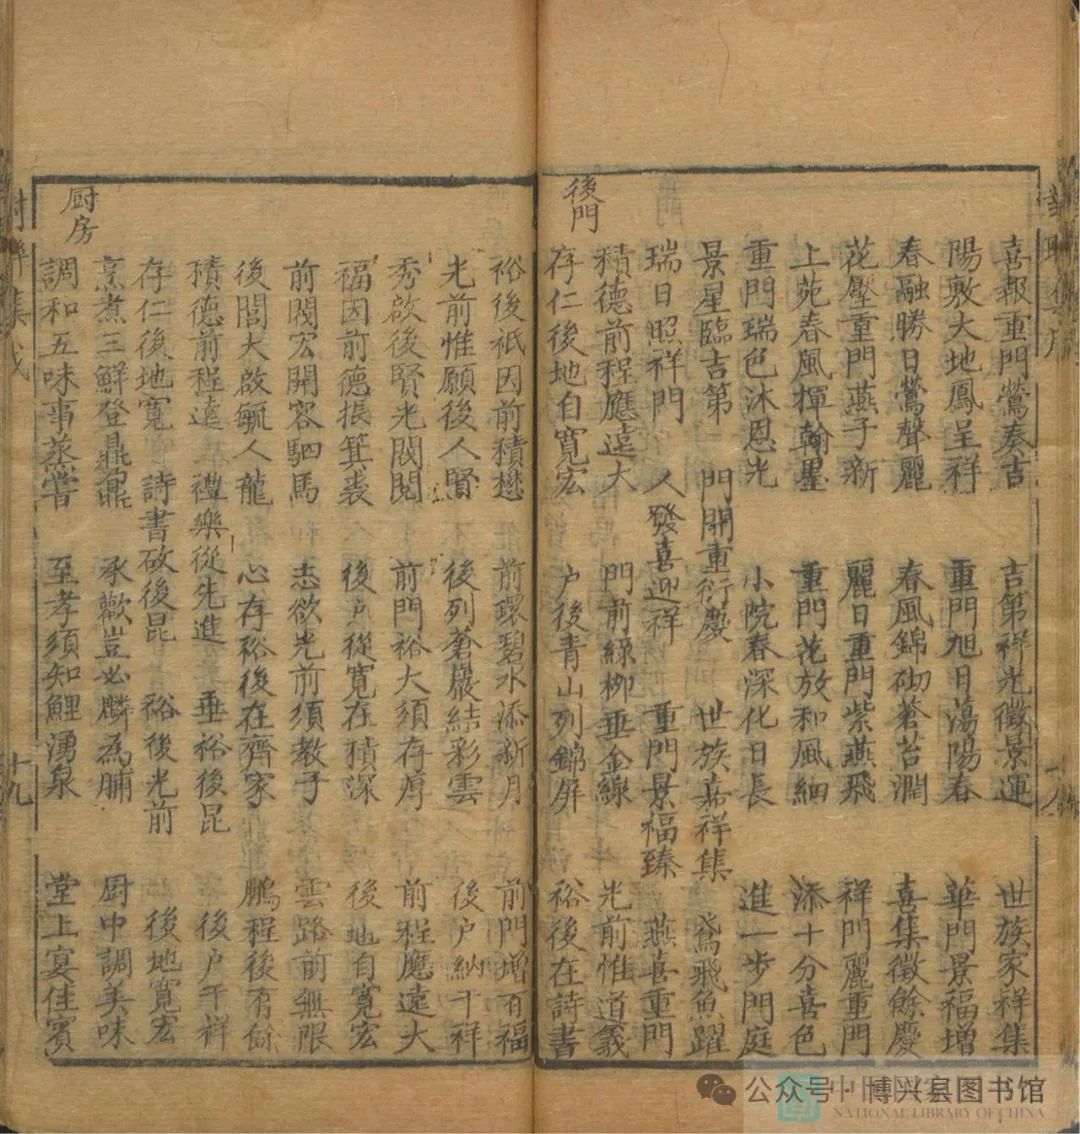 喜報重門鶯奏吉　吉第祥光徵景運　世族家祥集
陽敷大地鳳呈祥　重門旭日蕩陽春　華門景福增
春融勝日鶯聲麗　春風錦砌蒼苔潤　喜集徵餘慶
花壓重門燕子新　麗日重門紫燕飛　祥門麗重門
上苑春風揮翰墨　重門花放和風細　添十分喜色
重門瑞色沐恩光　小院春深化日長　進一步門庭
景星臨吉第　門開重衍慶　世族嘉祥集　鳶飛魚躍
瑞日照祥門　人發喜迎祥　重門景福臻　燕喜重門
後門
積德前程應遠大　門前綠柳垂金線　光前惟道義
存仁後地自寬宏　户後青山列錦屏　裕後在詩書
裕後祇因前積懋　前環碧水添新月　前門增百福
光前惟願後人賢　後列蒼巖結彩雲　後户納千祥
秀啟後賢光閥閱　前門裕大須存厚　前程應遠大
福因前德振箕裘　後户從寬在積深　後地自寬宏
前閥宏開容駟馬　志欲光前須教子　雲路前無限
後閭大啟毓人龍　心存裕後在齊家　鵬程後有餘
積德前程遠　禮樂從先進　垂裕後昆　後户千祥
存仁後地寬　詩書啟後昆　裕後光前　後地寬宏
厨房
烹煮三鮮登鼎鼐　承歡豈必麟為脯　厨中調美味
調和五味事蒸嘗　至孝須知鯉湧泉　堂上宴佳賓
十九
公众号·博兴县图书馆
NATIONAL LIBRARY OF CHINA